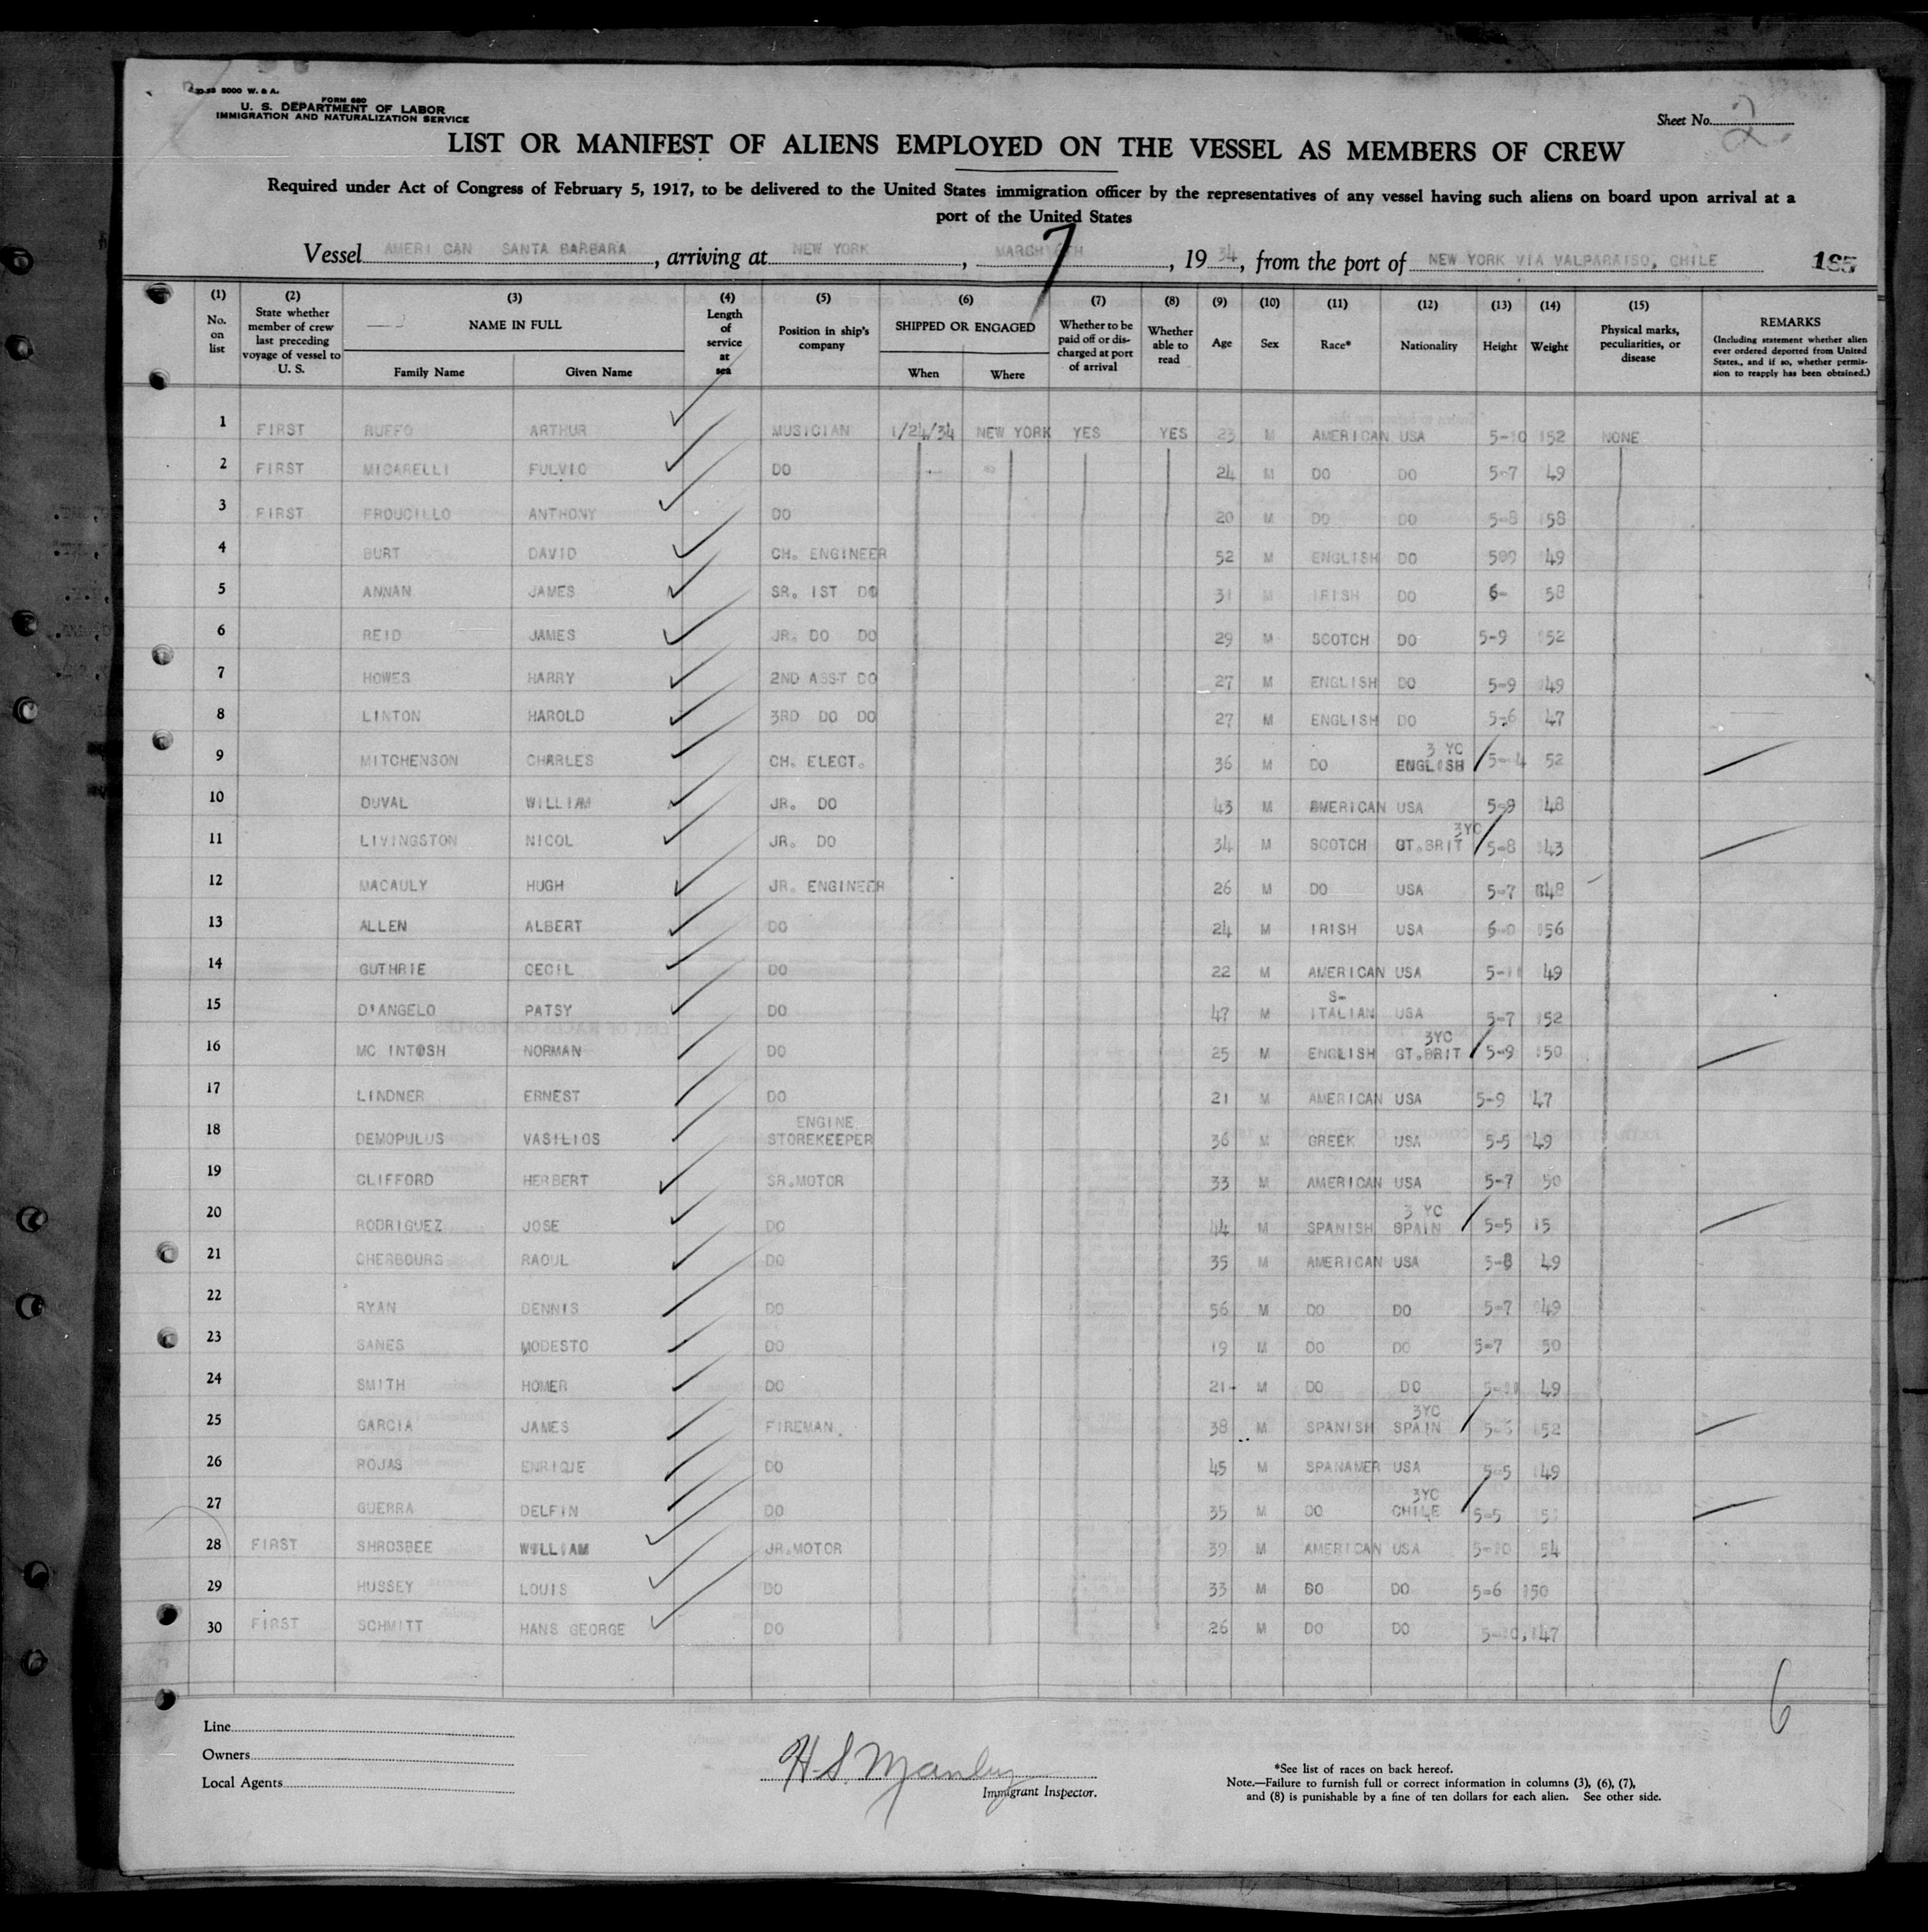 3000 W. & A.
FORM 680
U. S. DEPARTMENT OF LABOR
IMMIGRATION AND NATURALIZATION SERVICE
Sheet No. 2.
LIST OR MANIFEST OF ALIENS EMPLOYED ON THE VESSEL AS MEMBERS OF CREW
Required under Act of Congress of February 5, 1917, to be delivered to the United States immigration officer by the representatives of any vessel having such aliens on board upon arrival at a
port of the United States
Vessel AMERICAN SANTA BARBARA, arriving at NEW YORK, MARCH 7 TH, 1934, from the port of NEW YORK VIA VALPARAISO, CHILE 185
(1) (2) (3) (4) (5) (6) (7) (8) (9) (10) (11) (12) (13) (14) (15)
No. on list
State whether member of crew last preceding voyage of vessel to U. S.
NAME IN FULL
Family Name Given Name
Length of service at sea
Position in ship's company
SHIPPED OR ENGAGED
When Where
Whether to be paid off or discharged at port of arrival
Whether able to read
Age Sex Race* Nationality Height Weight
Physical marks, peculiarities, or disease
REMARKS
(Including statement whether alien ever ordered deported from United States., and if so, whether permission to reapply has been obtained.)
1 FIRST RUFFO ARTHUR MUSICIAN 1/24/34 NEW YORK YES YES 23 M AMERICAN USA 5-10 152 NONE
2 FIRST MICARELLI FULVIO DO 24 M DO DO 5-7 49
3 FIRST FROUCILLO ANTHONY DO 20 M DO DO 5-8 158
4 BURT DAVID CH. ENGINEER 52 M ENGLISH DO 509 149
5 ANNAN JAMES SR. 1ST DO 31 M IRISH DO 6- 58
6 REID JAMES JR. DO DO 29 M SCOTCH DO 5-9 152
7 HOWES HARRY 2ND ASST DO 27 M ENGLISH DO 5-9 149
8 LINTON HAROLD 3RD DO DO 27 M ENGLISH DO 5-6 47
9 MITCHENSON CHARLES CH. ELECT. 36 M DO 3 YC ENGLISH 5-4 52
10 DUVAL WILLIAM JR. DO 43 M AMERICAN USA 5-9 148
11 LIVINGSTON NICOL JR. DO 34 M SCOTCH 3YC GT.BRIT 5-8 143
12 MACAULY HUGH JR. ENGINEER 26 M DO USA 5-7 148
13 ALLEN ALBERT DO 24 M IRISH USA 6-0 156
14 GUTHRIE CECIL DO 22 M AMERICAN USA 5-11 49
15 D'ANGELO PATSY DO 47 M S- ITALIAN USA 5-7 152
16 MC INTOSH NORMAN DO 25 M ENGLISH 3YC GT.BRIT 5-9 150
17 LINDNER ERNEST DO 21 M AMERICAN USA 5-9 147
18 DEMOPULUS VASILIOS ENGINE STOREKEEPER 36 M GREEK USA 5-5 149
19 CLIFFORD HERBERT SR.MOTOR 33 M AMERICAN USA 5-7 50
20 RODRIGUEZ JOSE DO 44 M SPANISH 3 YC SPAIN 5-5 15
21 CHERBOURG RAOUL DO 35 M AMERICAN USA 5-8 49
22 RYAN DENNIS DO 56 M DO DO 5-7 149
23 SANES MODESTO DO 19 M DO DO 5-7 50
24 SMITH HOMER DO 21 M DO DO 49
25 GARCIA JAMES FIREMAN 38 M SPANISH 3YC SPAIN 152
26 ROJAS ENRIQUE DO 45 M SPANAMER USA 5-5 149
27 GUERRA DELFIN DO 35 M DO 3YC CHILE 5-5
28 FIRST SHROSBEE WILLIAM JR.MOTOR 39 M AMERICAN USA 5-10 54
29 HUSSEY LOUIS DO 33 M DO DO 5-6 150
30 FIRST SCHMITT HANS GEORGE DO 26 M DO DO 5-10 147
6
Line
Owners
Local Agents
H S Manley
Immigrant Inspector.
*See list of races on back hereof.
Note.—Failure to furnish full or correct information in columns (3), (6), (7),
and (8) is punishable by a fine of ten dollars for each alien. See other side.